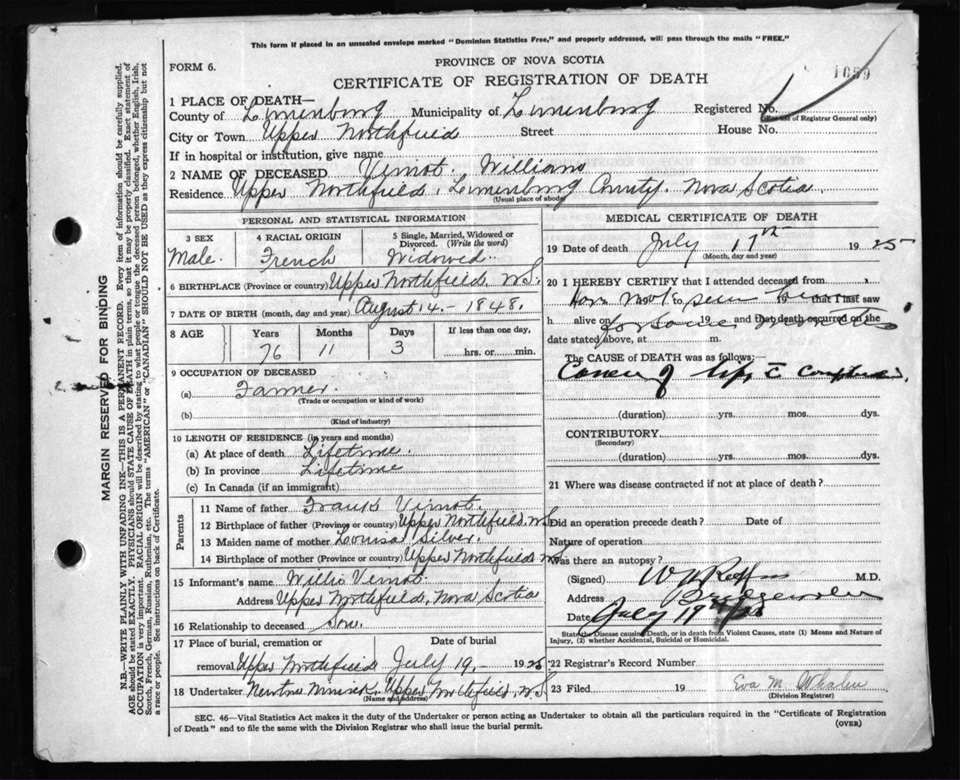 This form if placed in an unsealed envelope marked "Dominion Statistics Free," and properly addressed, will pass through the mails "FREE."
FORM 6.
PROVINCE OF NOVA SCOTIA
1659
CERTIFICATE OF REGISTRATION OF DEATH
1 PLACE OF DEATH—
County of Lunenburg Municipality of Lunenburg Registered No.
(For use of Registrar General only)
City or Town Upper Northfield Street House No.
If in hospital or institution, give name
2 NAME OF DECEASED Vernot. William
Residence Upper Northfield, Lunenburg County. Nova Scotia.
(Usual place of abode)
PERSONAL AND STATISTICAL INFORMATION
3 SEX 4 RACIAL ORIGIN 5 Single, Married, Widowed or Divorced. (Write the word)
Male. French Widowed.
6 BIRTHPLACE (Province or country) Upper Northfield, N.S.
7 DATE OF BIRTH (month, day and year) August 14.- 1848.
8 AGE Years Months Days If less than one day,
76 11 3 hrs. or min.
9 OCCUPATION OF DECEASED
(a) Farmer.
(Trade or occupation or kind of work)
(b)
(Kind of industry)
10 LENGTH OF RESIDENCE (in years and months)
(a) At place of death Lifetime.
(b) In province Lifetime
(c) In Canada (if an immigrant)
Parents
11 Name of father Frank Vernot.
12 Birthplace of father (Province or country) Upper Northfield. N.S.
13 Maiden name of mother Louisa Silver.
14 Birthplace of mother (Province or country) Upper Northfield N.S.
15 Informant's name Willis Vernot.
Address Upper Northfield, Nova Scotia
16 Relationship to deceased Son.
17 Place of burial, cremation or Date of burial
removal Upper Northfield July 19, 1925
18 Undertaker Newton Upper Northfield, N.S.
(Name and address)
MEDICAL CERTIFICATE OF DEATH
19 Date of death July 17th 1925
(Month, day and year)
20 I HEREBY CERTIFY that I attended deceased from
Have not to seen him 19 that I last saw
h alive on for some 19 and that death occurred on the
date stated above, at m.
The CAUSE of DEATH was as follows:
Cancer of lip, c
(duration) yrs. mos. dys.
CONTRIBUTORY
(Secondary)
(duration) yrs. mos. dys.
21 Where was disease contracted if not at place of death?
Did an operation precede death? Date of
Nature of operation
Was there an autopsy?
(Signed) M.D.
Address Bridgewater
Date July 19th/25
State the Disease causing Death, or in death from Violent Causes, state (1) Means and Nature of Injury, (2) whether Accidental, Suicidal or Homicidal.
22 Registrar's Record Number
23 Filed 19 Eva M. Whalen
(Division Registrar)
SEC. 46—Vital Statistics Act makes it the duty of the Undertaker or person acting as Undertaker to obtain all the particulars required in the "Certificate of Registration
of Death" and to file the same with the Division Registrar who shall issue the burial permit.
(OVER)
MARGIN RESERVED FOR BINDING
N.B.—WRITE PLAINLY WITH UNFADING INK—THIS IS A PERMANENT RECORD. Every item of information should be carefully supplied.
AGE should be stated EXACTLY. PHYSICIANS should STATE CAUSE OF DEATH in plain terms, so that it may be properly classified. Exact statement of
OCCUPATION is very important. RACIAL ORIGIN will be described by stating to what people or tongue the deceased person belonged, whether English, Irish,
Scotch, French, German, Russian, Ruthenian, etc. The terms "AMERICAN" or "CANADIAN" SHOULD NOT BE USED as they express citizenship but not
a race or people. See instructions on back of Certificate.